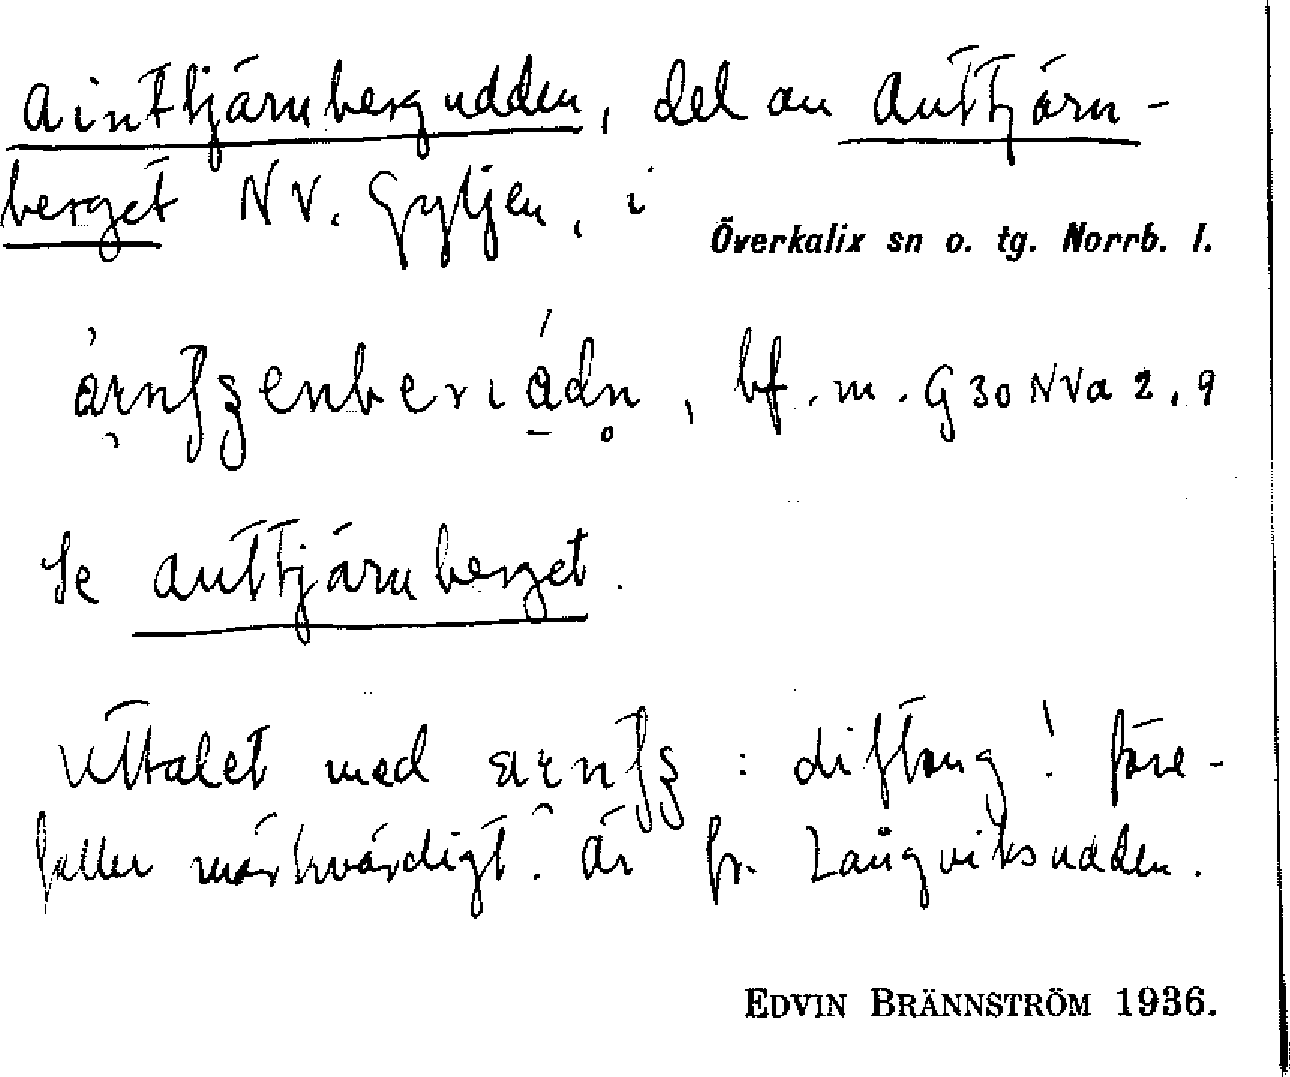 Ainttjärnbergudden, del av Anttjärn-
berget NV. Gyljen, i
Överkalix sn o. tg. Norrb. l.
bf. m. G 30 NVa 2, 9
Se Anttjärnberget.
Uttalet med : diftong! före-
faller märkvärdigt. Är fr. Långviksudden.
EDVIN BRÄNNSTRÖM 1936.